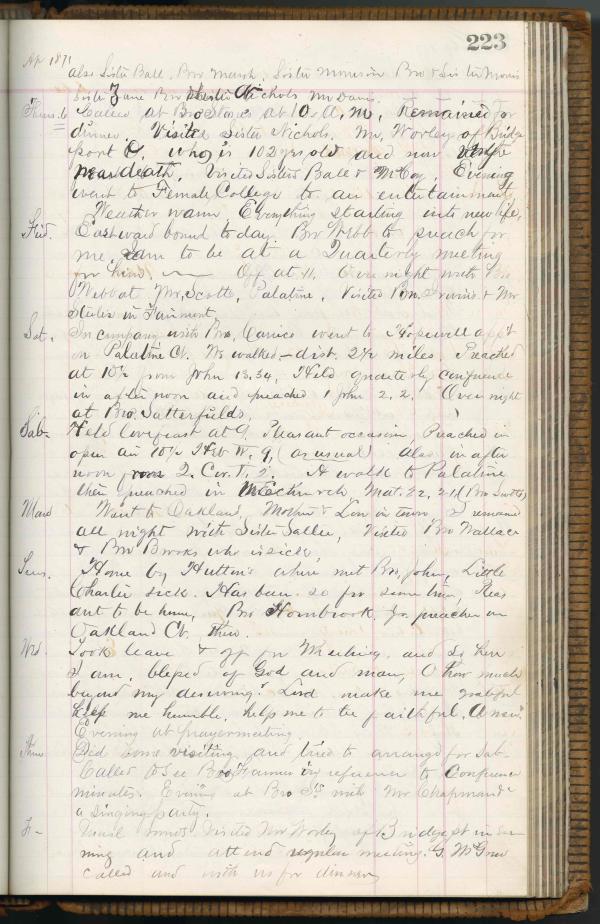 223
Ap 1871
also Sister Ball, Bro March, Sister Morrison Bro & Sister Morris
Sister Zane Bro Nichols Mr Davis.
Thurs. 6 Called at Bro Stones at 10. A. M. Remained for
dinner. Visited Sister Nichols. Mr. Worley of Bridge
port O. who is 102 yrs old and now
near death. Visited Sister Ball & McCoy. Evening
went to Female College to an entertainment,
Weather warm, Everything starting into new life,
Frid. Eastward bound to day. Bro Webb to preach for
me. I am to be at a Quarterly meeting
for him. Off at 11. Over night with Bro
Webb at Mr. Scotts, Palatine. Visited Bro. Irwins & Mr
States in Fairmont.
Sat. In company with Bro. Carrico went to Hopewell appt
on Palatine Ct. We walked – dist. 2½ miles. Preached
at 10½ from John 13.34, Held quarterly conference
in after noon and preached 1 John 2, 2. Over night
at Bro. Satterfields,
Sab. Held lovefeast at 9. Pleasant occasion, Preached in
open air 10½ Heb. 9, (as usual) also in after
noon from 2. Cor. 5, 2. A walk to Palatine,
then preached in M E church, Mat. 22, 21
Mond Went to Oakland, Mother & Lou in town I remained
all night with Sister Sallie, Visited Bro Wallace
& Bro Brooks who is sick
Tues. Home by Hutton where met Bro. John, Little
Charlie sick. Has been so for some time, Pleas
ant to be home, Bro Hornbrook Jr. preacher on
Oakland Ct. there.
Wed. Took leave & off for Wheeling. and so here
I am, blessed of God and man, O how much
beyond my deserving! Lord make me grateful
keep me humble, help me to be faithful. Amen.
Evening at prayermeeting.
Thur Did some visiting and tried to arrange for Sab.
Called to see Bro in reference to Conference
minutes. Evening at Bro with Mr Chapman &
a singing party.
F – Usual rounds Visited Mr Worley of Bridgept in eve
ning and attend regular meeting. G. W. Grow
called and with us for dinner,